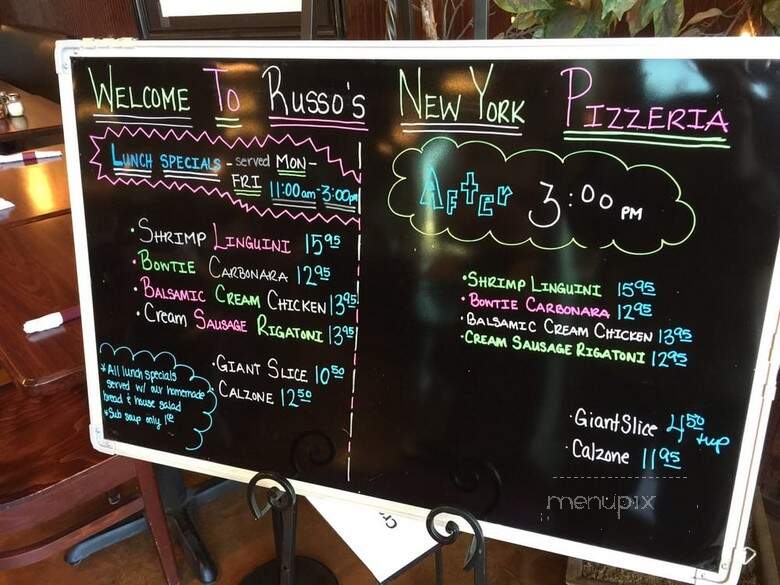 WELCOME TO RUSSO'S NEW YORK PIZZERIA
LUNCH SPECIALS - served MON -
FRI 11:00am-3:00pm
• SHRIMP LINGUINI 15 95
• BOWTIE CARBONARA 12 95
• BALSAMIC CREAM CHICKEN 13 95
• CREAM SAUSAGE RIGATONI 13 95
• GIANT SLICE 10 50
• CALZONE 12 50
* All lunch specials
served w/ our homemade
bread & house salad
* Sub soup only 1
AFTER 3:00 PM
• SHRIMP LINGUINI 15 95
• BOWTIE CARBONARA 12 95
• BALSAMIC CREAM CHICKEN 13 95
• CREAM SAUSAGE RIGATONI 12 95
• Giant Slice 4 50 + up
• Calzone 11 95
menupix